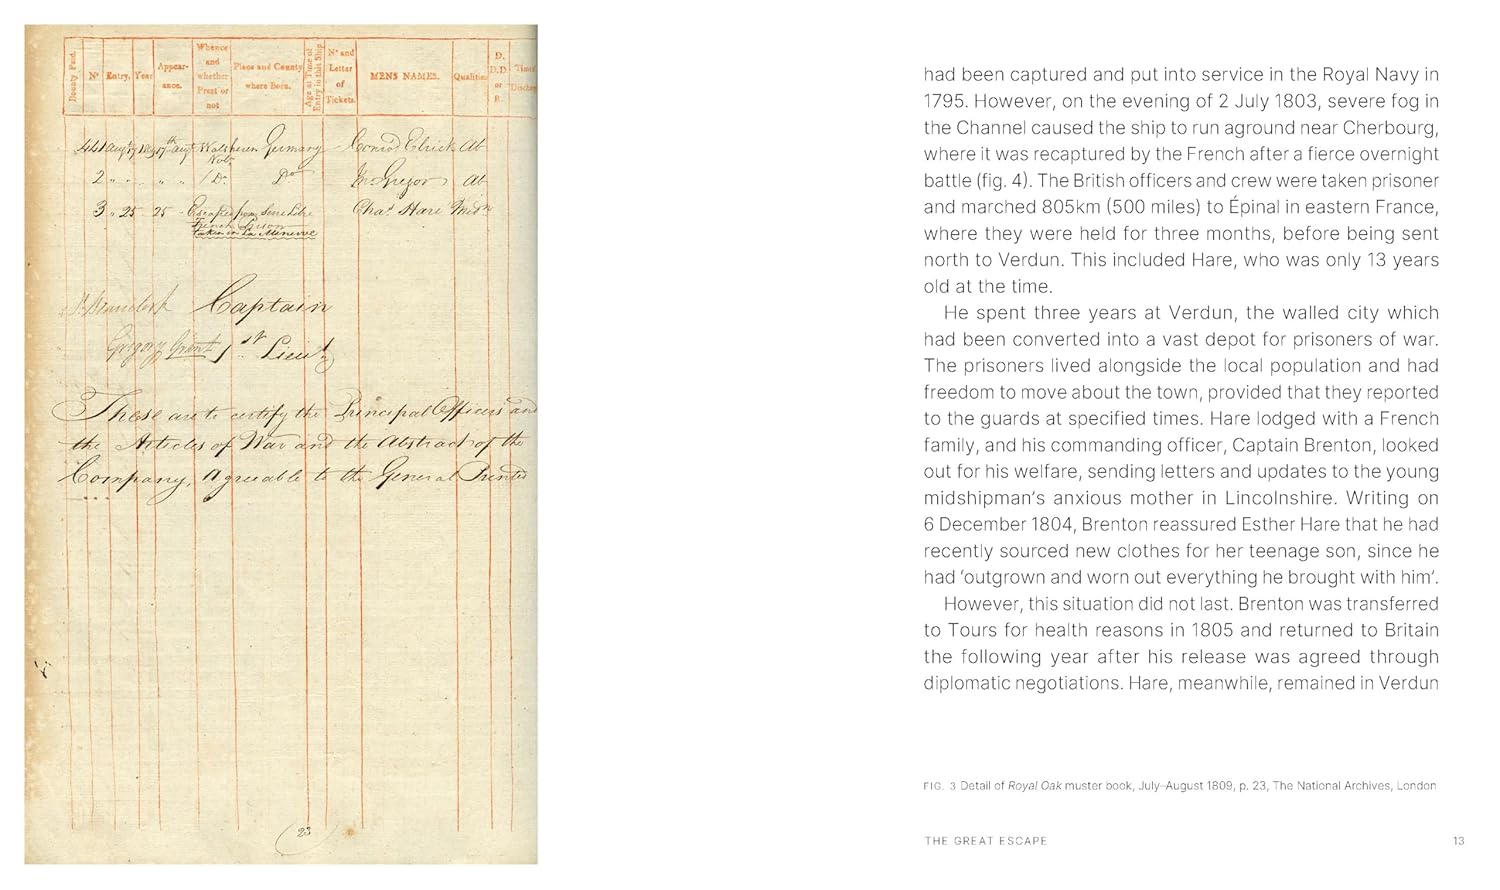 Bounty Paid.
Nº
Entry.
Year
Appear-
ance.
Whence
and
whether
Prest or
not
Place and County
where Born.
Age at Time of
Entry in this Ship.
Nº and
Letter
of
Tickets.
MENS NAMES.
Qualities
D.
D.D
or
R.
441 Augt 17 1809 17th Augt Walsheren Germany Conrod Elrick Ab
2 " " " " / Do. Do Jn Gregor Ab
3 " 25 25 - Escaped from Sarre Libre Chas. Hare Midn
French Prison
taken in La Minerve
Captain
Gregory Grant 1st Lieut
These are to certify the Principal Officers and
the Articles of War and the Abstract of the
Company, Agreeable to the General Printed
(23)
had been captured and put into service in the Royal Navy in
1795. However, on the evening of 2 July 1803, severe fog in
the Channel caused the ship to run aground near Cherbourg,
where it was recaptured by the French after a fierce overnight
battle (fig. 4). The British officers and crew were taken prisoner
and marched 805km (500 miles) to Épinal in eastern France,
where they were held for three months, before being sent
north to Verdun. This included Hare, who was only 13 years
old at the time.
He spent three years at Verdun, the walled city which
had been converted into a vast depot for prisoners of war.
The prisoners lived alongside the local population and had
freedom to move about the town, provided that they reported
to the guards at specified times. Hare lodged with a French
family, and his commanding officer, Captain Brenton, looked
out for his welfare, sending letters and updates to the young
midshipman's anxious mother in Lincolnshire. Writing on
6 December 1804, Brenton reassured Esther Hare that he had
recently sourced new clothes for her teenage son, since he
had 'outgrown and worn out everything he brought with him'.
However, this situation did not last. Brenton was transferred
to Tours for health reasons in 1805 and returned to Britain
the following year after his release was agreed through
diplomatic negotiations. Hare, meanwhile, remained in Verdun
FIG. 3 Detail of Royal Oak muster book, July–August 1809, p. 23, The National Archives, London
THE GREAT ESCAPE 13